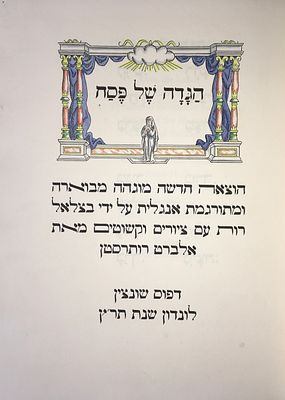 הַגָּדָה שֶׁל פֶּסַח
הוצאה חדשה מוגהה מבוארה
ומתורגמת אנגלית על ידי בצלאל
רות עם ציורים וקשוטים מאת
אלברט רותרסטן
דפוס שונצין
לונדון שנת תר״ץ